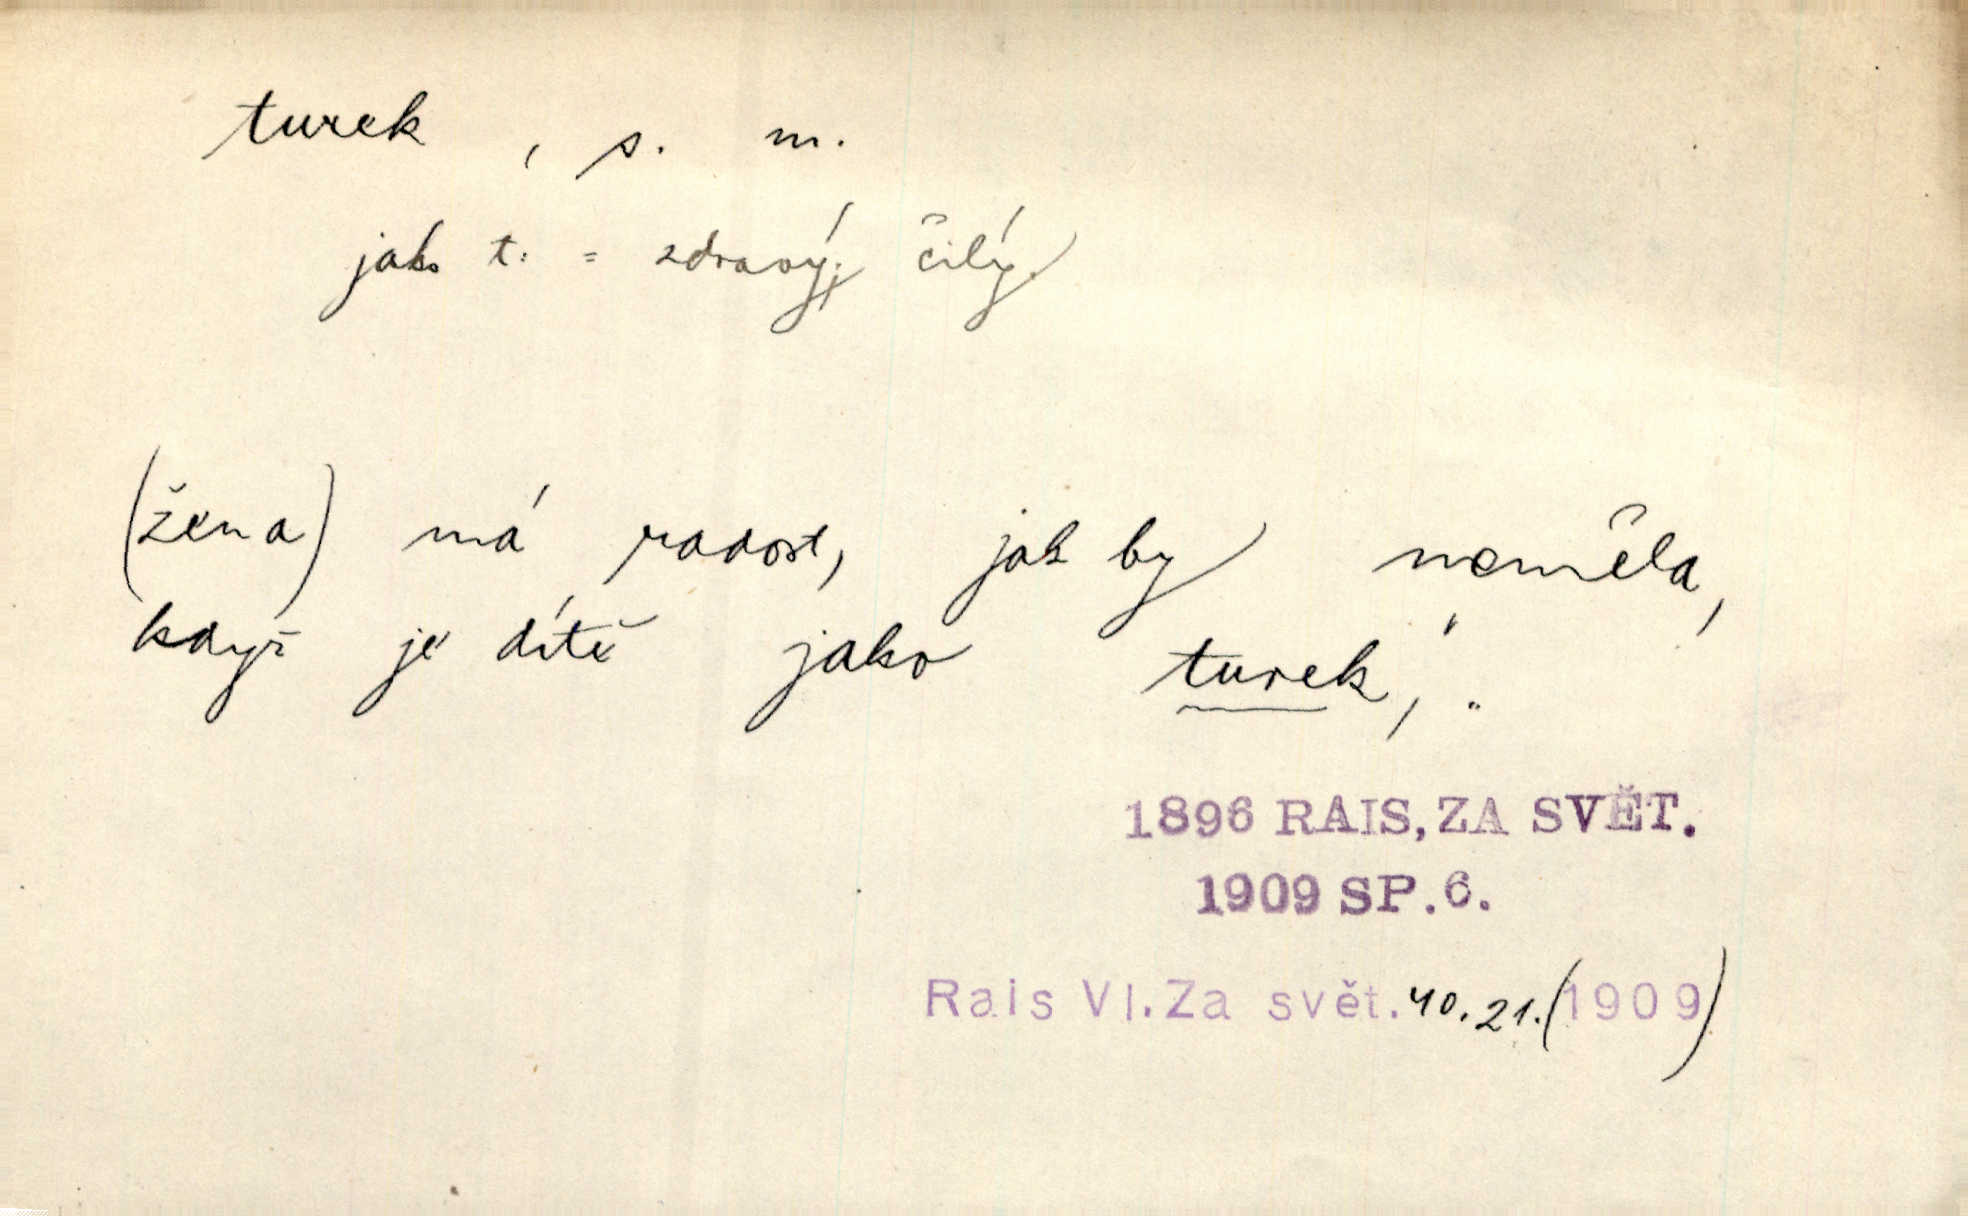 turek, s. m.
jako t. = zdravý, čilý.
(žena) má radost, jak by neměla,
když je dítě jako turek, "
1896 RAIS, ZA SVĚT.
1909 SP.6.
Rais VI.Za svět. 40.21.(1909)